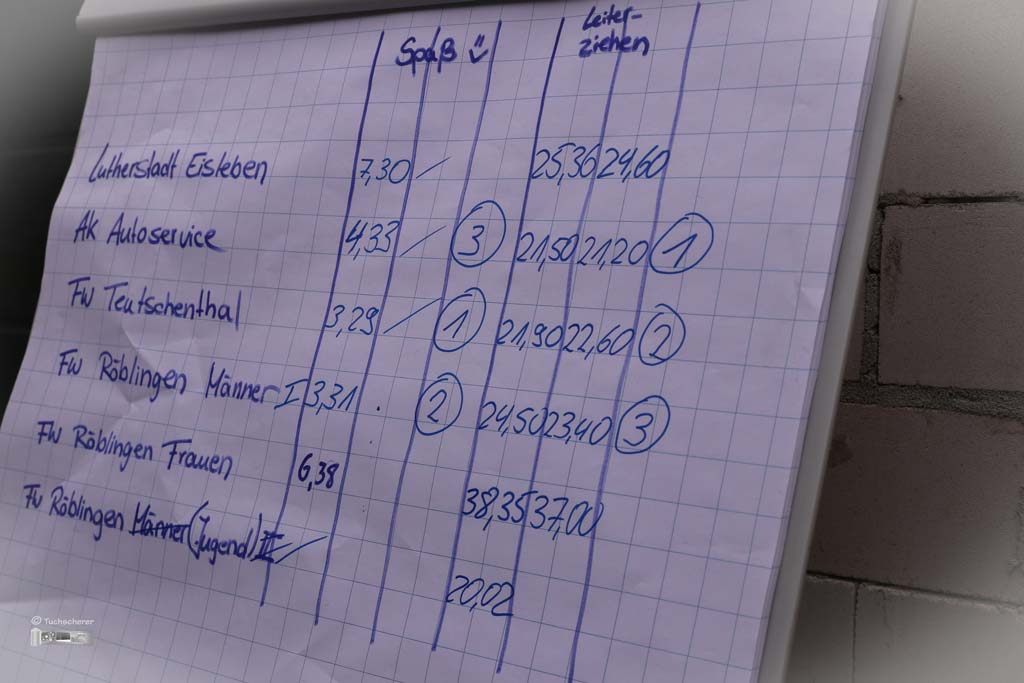 Spaß Leiter-
ziehen
Lutherstadt Eisleben 7,30 / 25,30 24,60
AK Autoservice 4,33 / 3 21,50 21,20 1
FW Teutschenthal 3,29 / 1 21,90 22,60 2
FW Röblingen Männer I 3,31 . 2 24,50 23,40 3
FW Röblingen Frauen 6,38 38,35 37,00
FW Röblingen Männer (Jugend) / 20,02
© Tuchscherer